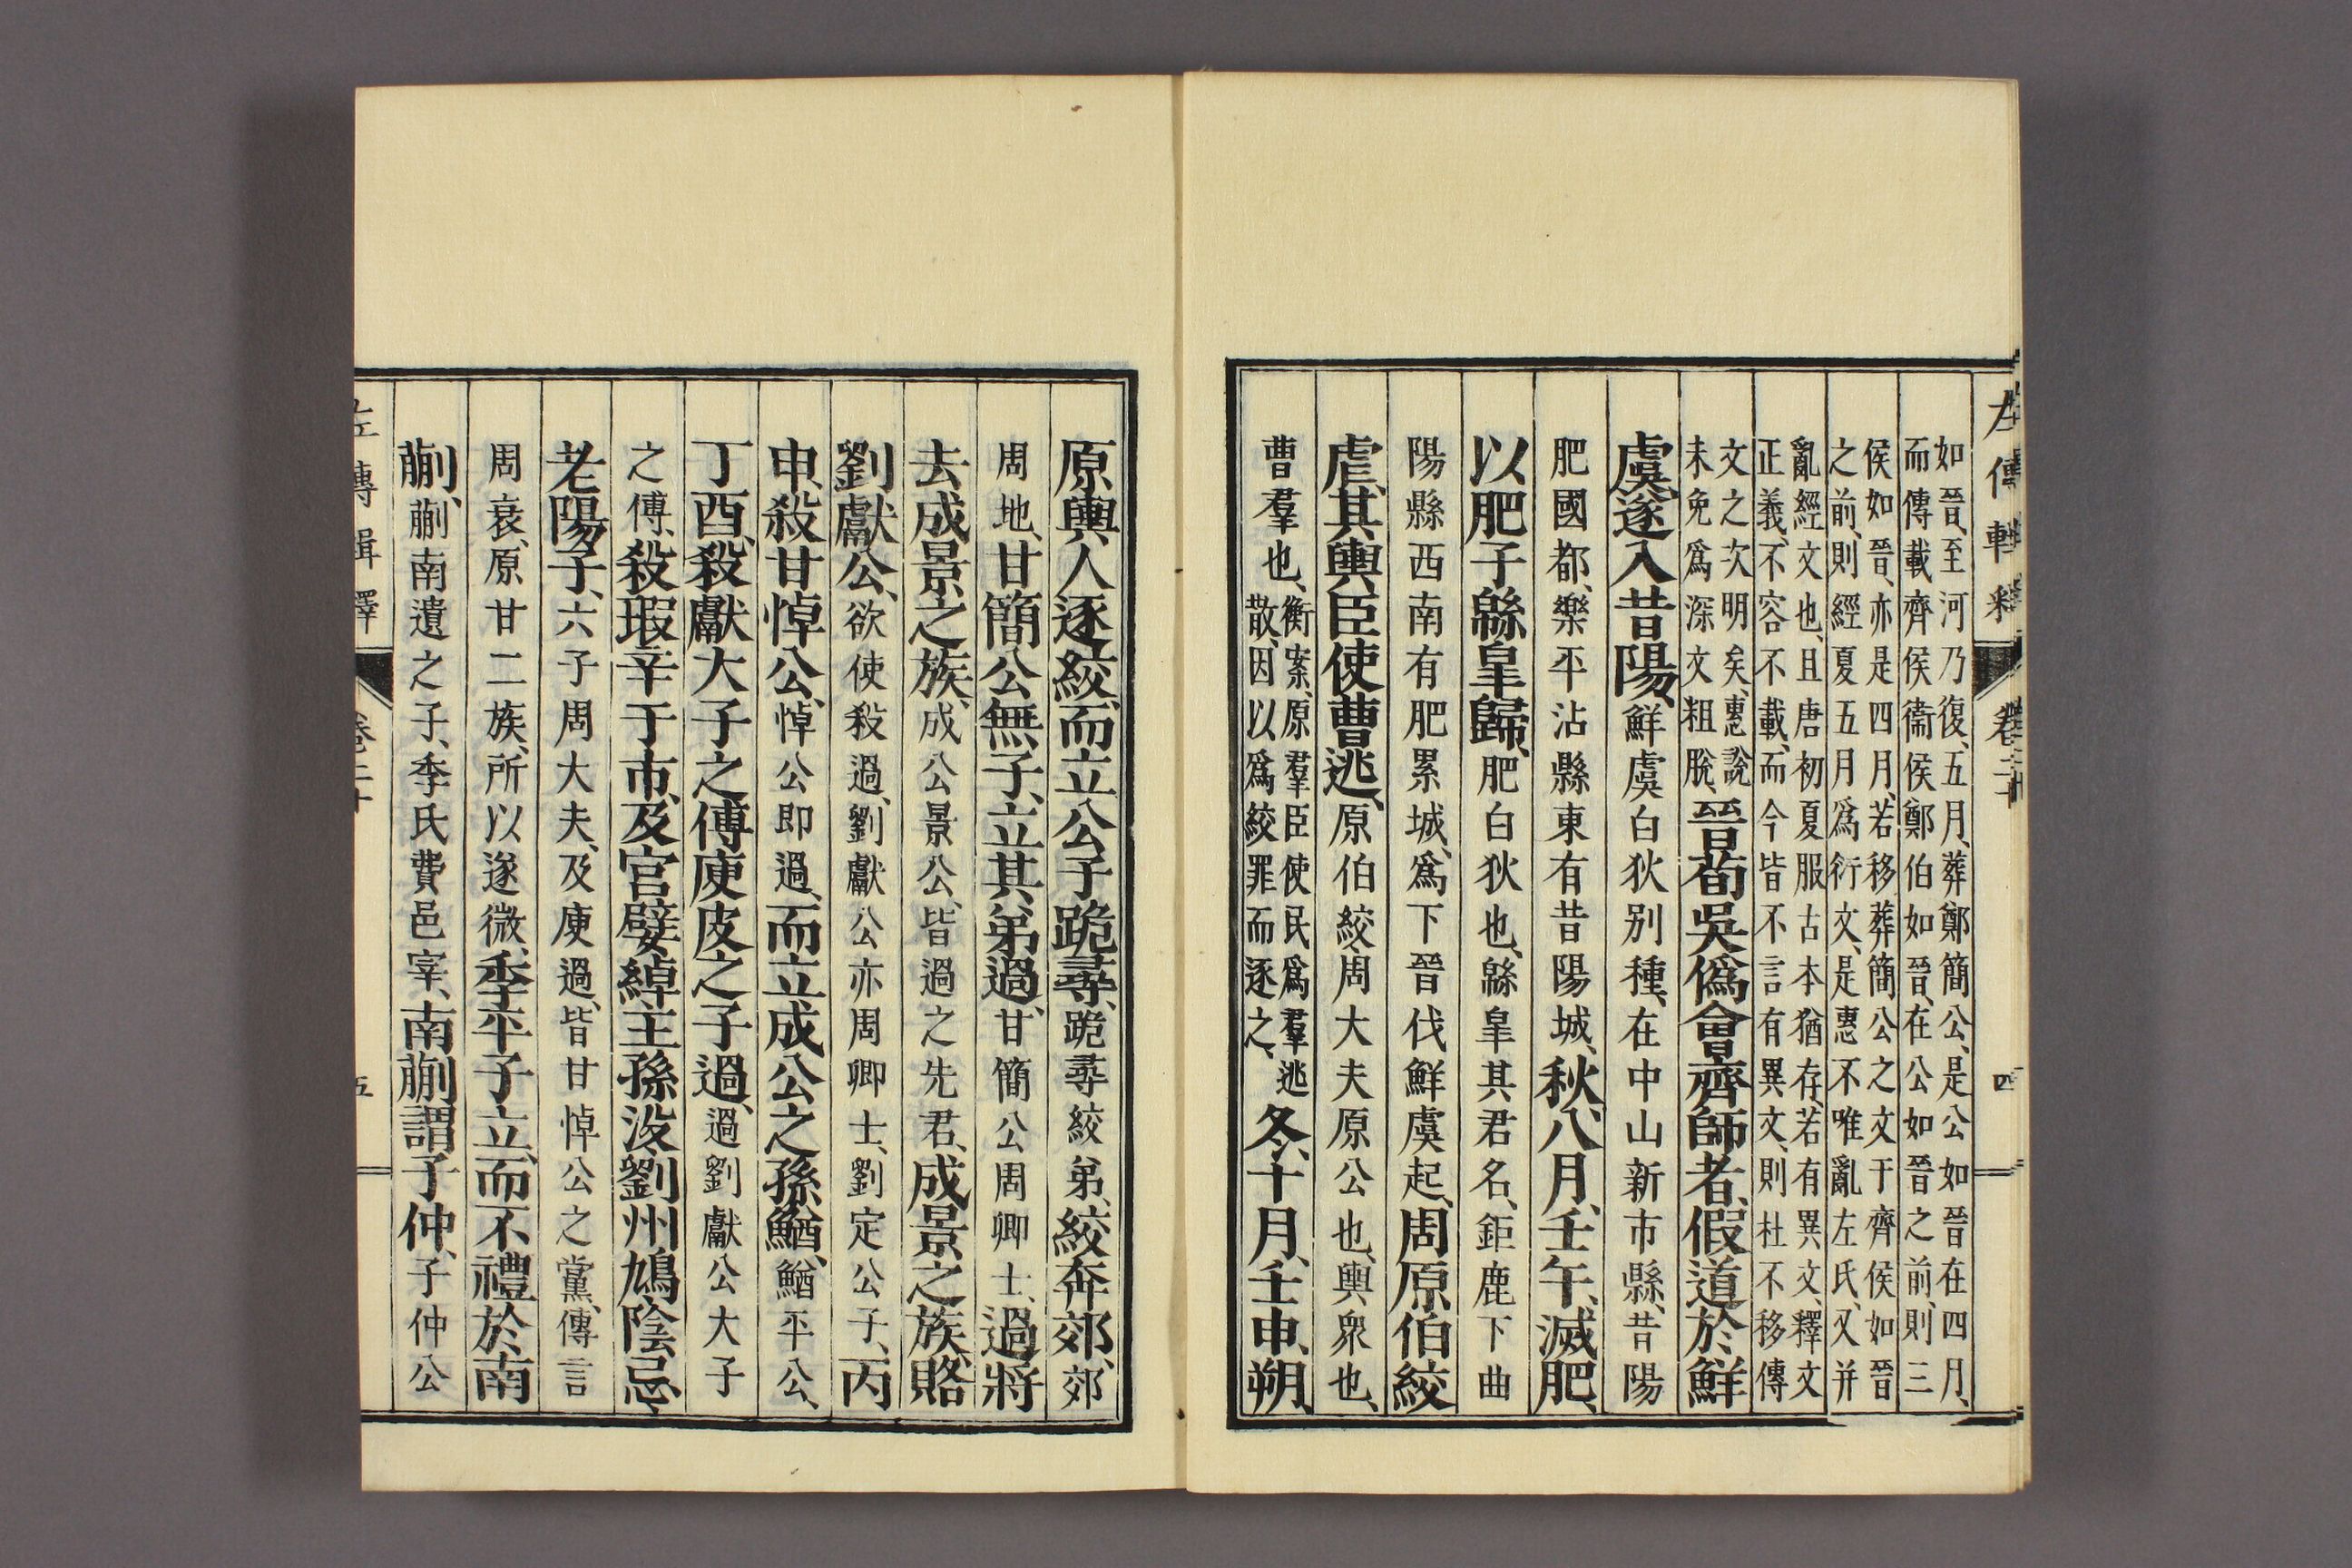 左傳輯釋 卷二十 四
如晉、至河乃復、五月、葬鄭簡公、是公如晉在四月、
而傳載齊侯衞侯鄭伯如晉、在公如晉之前、則三
侯如晉、亦是四月、若移葬簡公之文于齊侯如晉
之前、則經夏五月爲衍文、是惠不唯亂左氏、又并
亂經文也、且唐初夏服古本猶存、若有異文、釋文
正義、不容不載、而今皆不言有異文、則杜不移傳
文之次明矣、惠說
未免爲深文粗脫、晉荀吳僞會齊師者、假道於鮮
虞、遂入昔陽、鮮虞白狄別種、在中山新市縣、昔陽
肥國都、樂平沾縣東有昔陽城、秋、八月、壬午、滅肥、
以肥子緜皐歸、肥白狄也、緜皐其君名、鉅鹿下曲
陽縣西南有肥累城、爲下晉伐鮮虞起、周原伯絞
虐、其輿臣使曹逃、原伯絞、周大夫原公也、輿衆也、
曹羣也、衡案、原羣臣使民爲羣逃
散、因以爲絞罪而逐之、冬、十月、壬申、朔、
原輿人逐絞、而立公子跪尋、跪尋絞弟、絞奔郊、郊
周地、甘簡公無子、立其弟過、甘簡公周卿士、過將
去成景之族、成公景公、皆過之先君、成景之族、賂
劉獻公、欲使殺過、劉獻公亦周卿士、劉定公子、丙
申、殺甘悼公、悼公卽過、而立成公之孫鰌、鰌平公、
丁酉、殺獻大子之傅庾皮之子過、過劉獻公大子
之傅、殺瑕辛于市、及宮嬖綽王孫沒劉州鳩陰忌
老陽子、六子周大夫、及庾過、皆甘悼公之黨、傳言
周衰、原甘二族、所以遂微、季平子立、而不禮於南
蒯、蒯南遺之子、季氏費邑宰、南蒯謂子仲、子仲公
左傳輯釋 卷二十 五